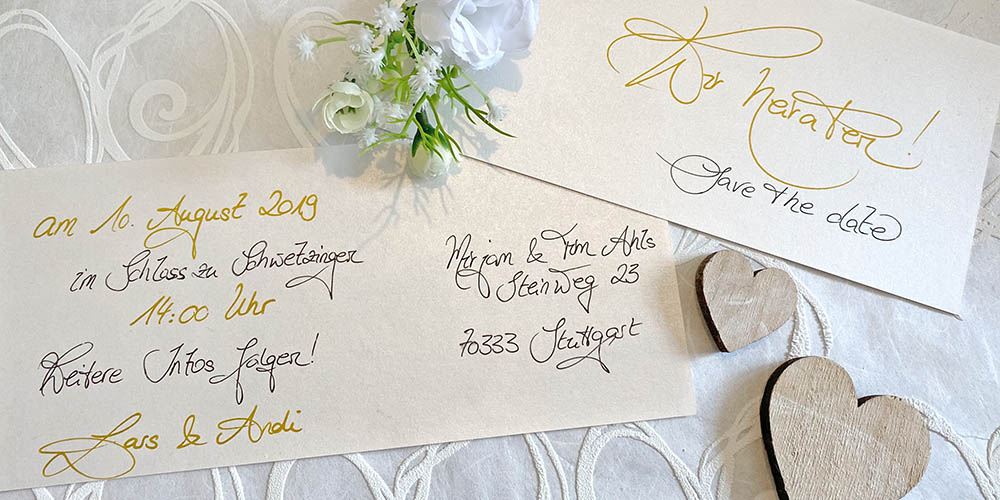 Wir heiraten!
Save the date
am 10. August 2019
im Schloss zu Schwetzingen
14:00 Uhr
Weitere Infos folgen!
Lars & Andi
Mirjam & Tom Ahls
Steinweg 23
70333 Stuttgart